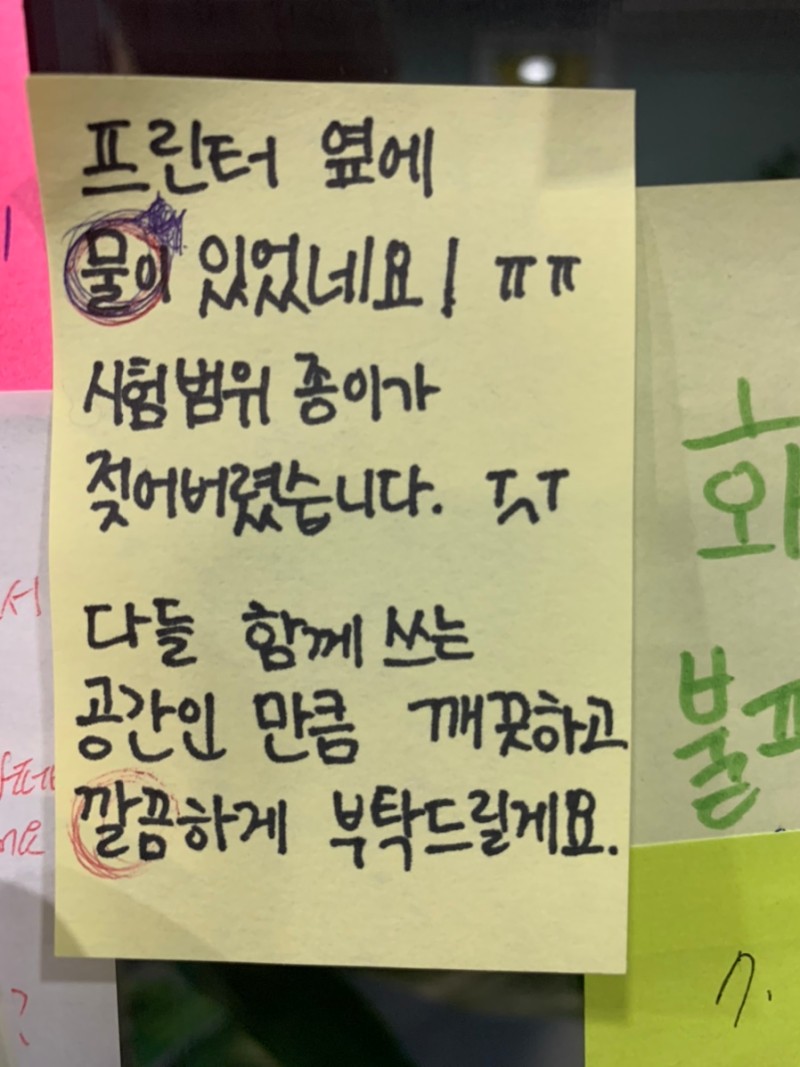 프린터 옆에
물이 있었네요! ㅠㅠ
시험범위 종이가
젖어버렸습니다. ㅜㅅㅜ
다들 함께 쓰는
공간인 만큼 깨끗하고
깔끔하게 부탁드릴게요.
화
불
서
?
7.